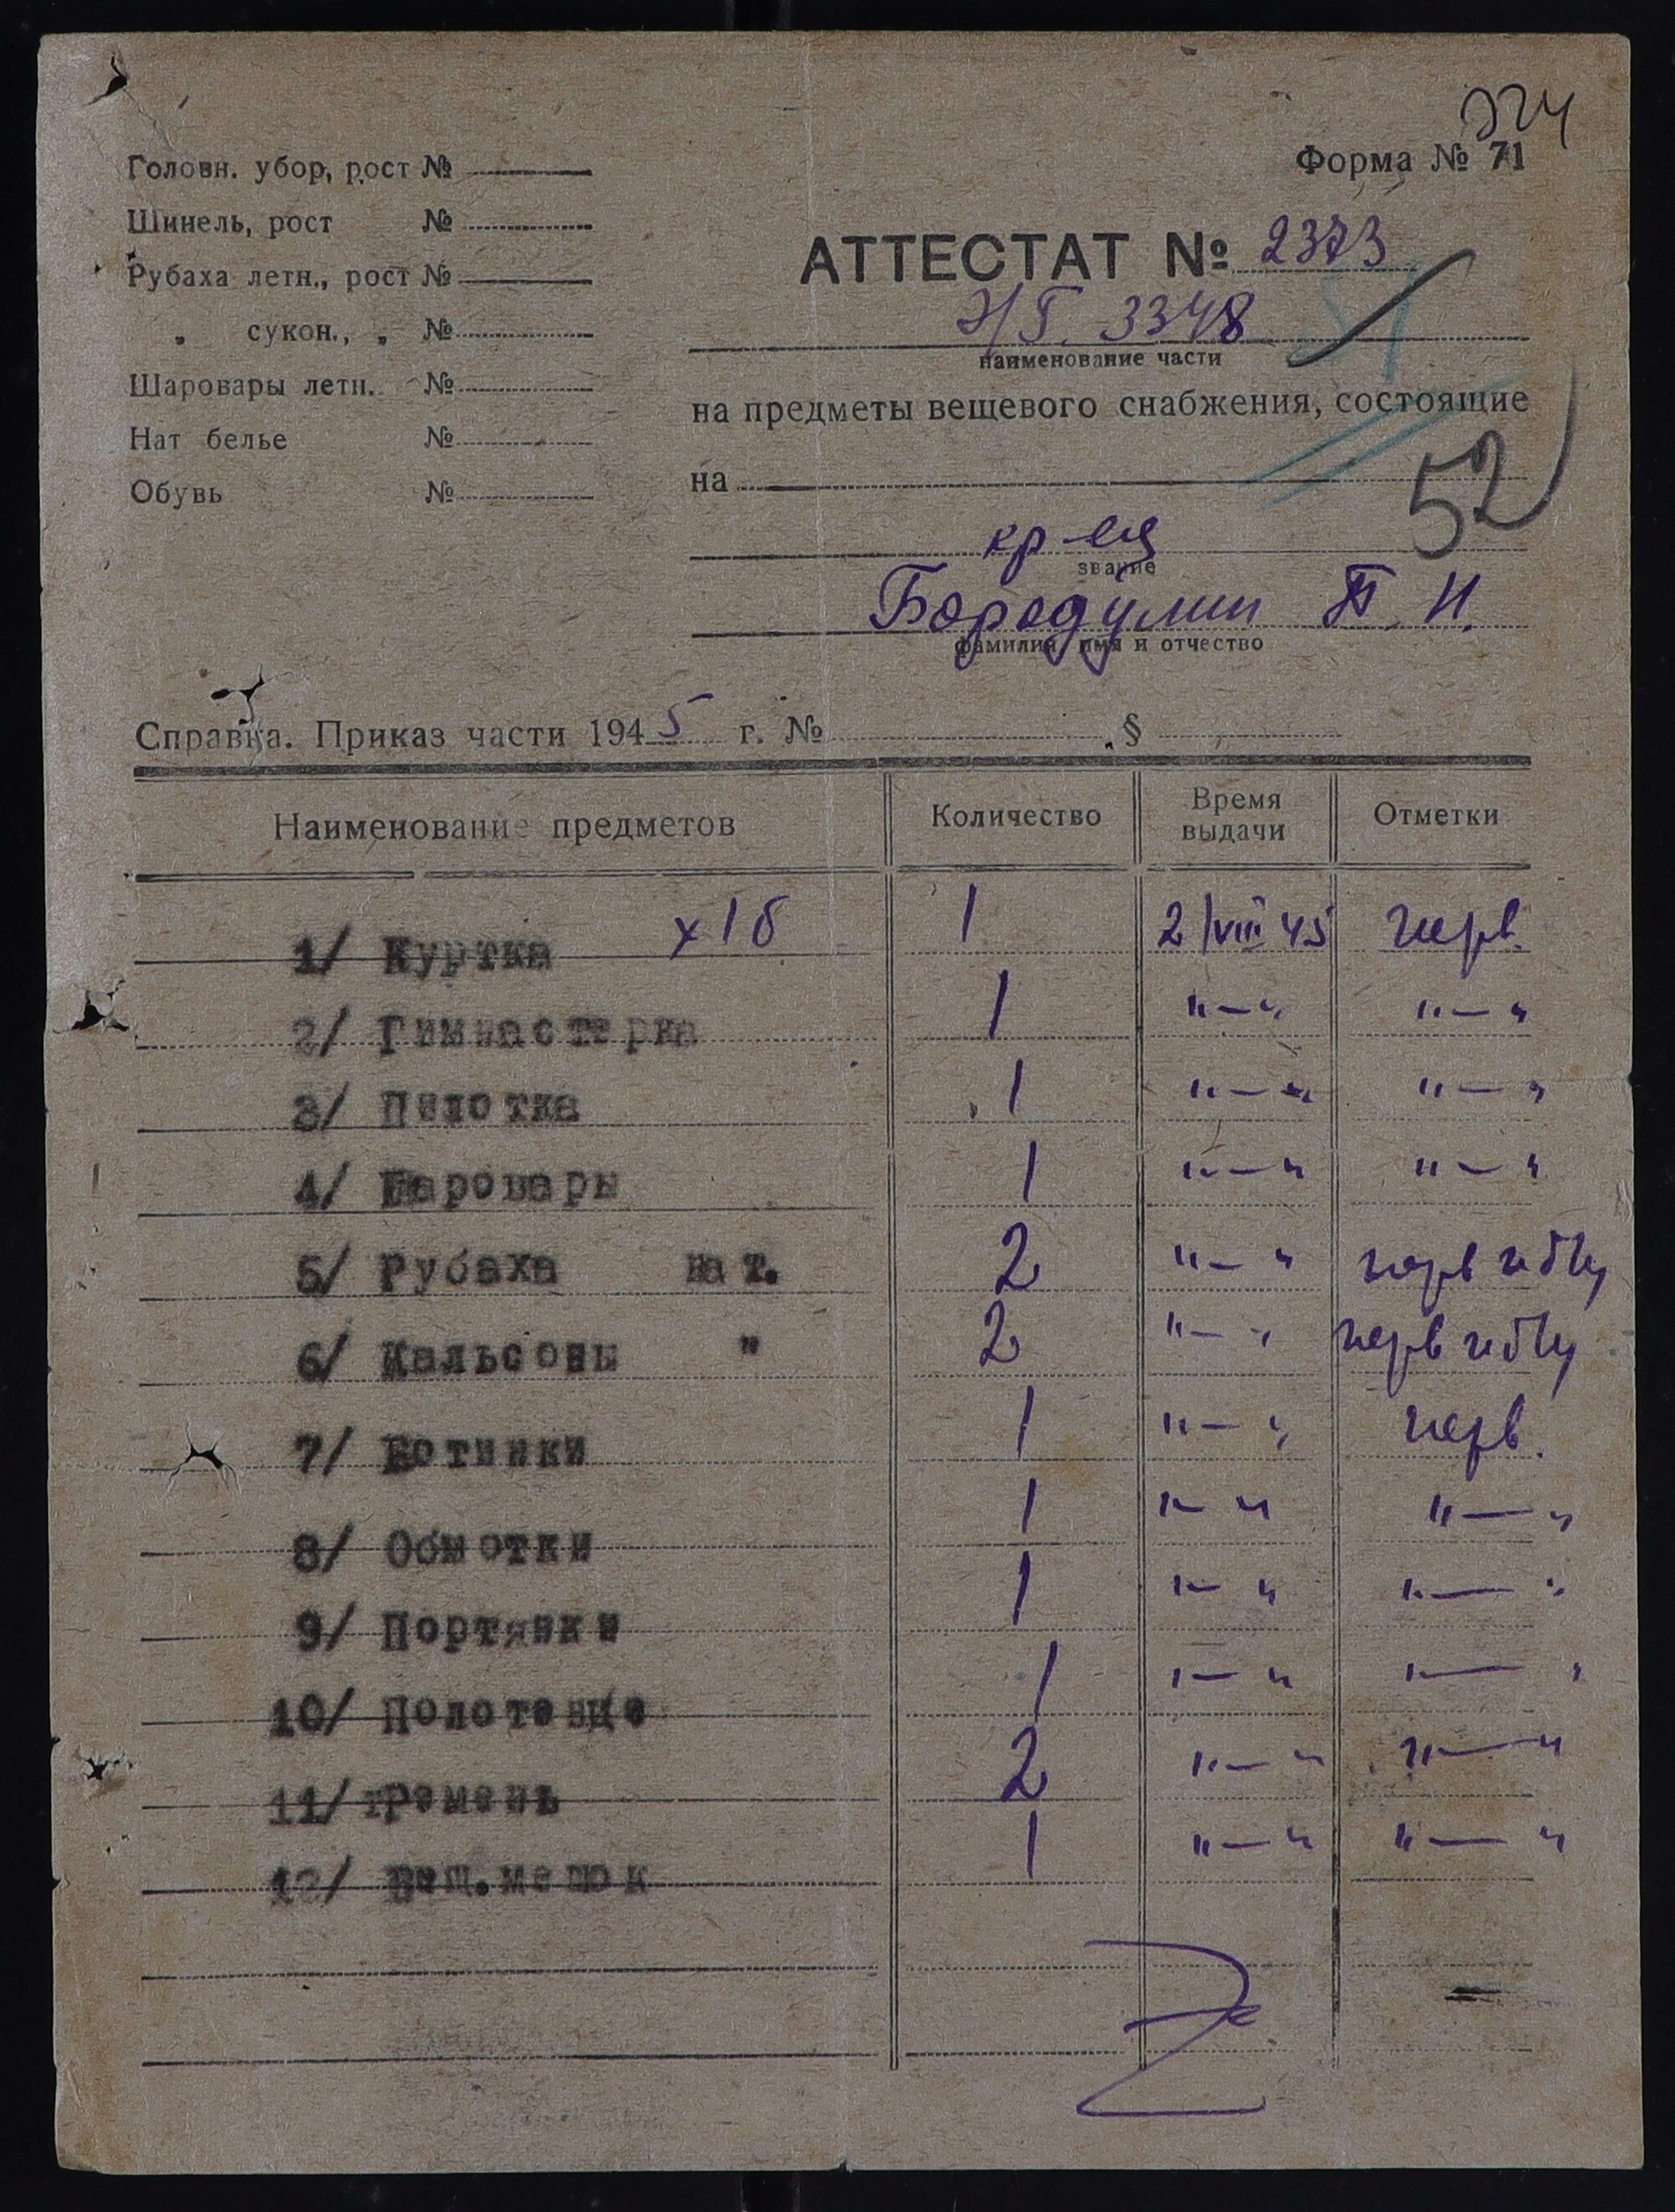 Головн. убор, рост №
Шинель, рост №
Рубаха летн., рост №
„ сукон., „ №
Шаровары летн. №
Нат белье №
Обувь №
Форма № 71
АТТЕСТАТ № 2373
3348
наименование части
на предметы вещевого снабжения, состоящие
на
52
кр-ец
звание
Бородулин П. И.
фамилия, имя и отчество
Справка. Приказ части 1945 г. № §
Наименование предметов Количество Время выдачи Отметки
1/ Куртка х/б 1 2/VIII 45 перв.
2/ Гимнастерка 1 "—" "—"
3/ Пилотка 1 "—" "—"
4/ Шаровары 1 "—" "—"
5/ Рубаха нат. 2 "—" перв и б/у
6/ Кальсоны " 2 "—" перв и б/у
7/ Ботинки 1 "—" перв.
8/ Обмотки 1 "—" "—"
9/ Портянки 1 "—" "—"
10/ Полотенце 1 "—" "—"
11/ Ремень 2 "—" "—"
12/ Вещ.мешок 1 "—" "—"